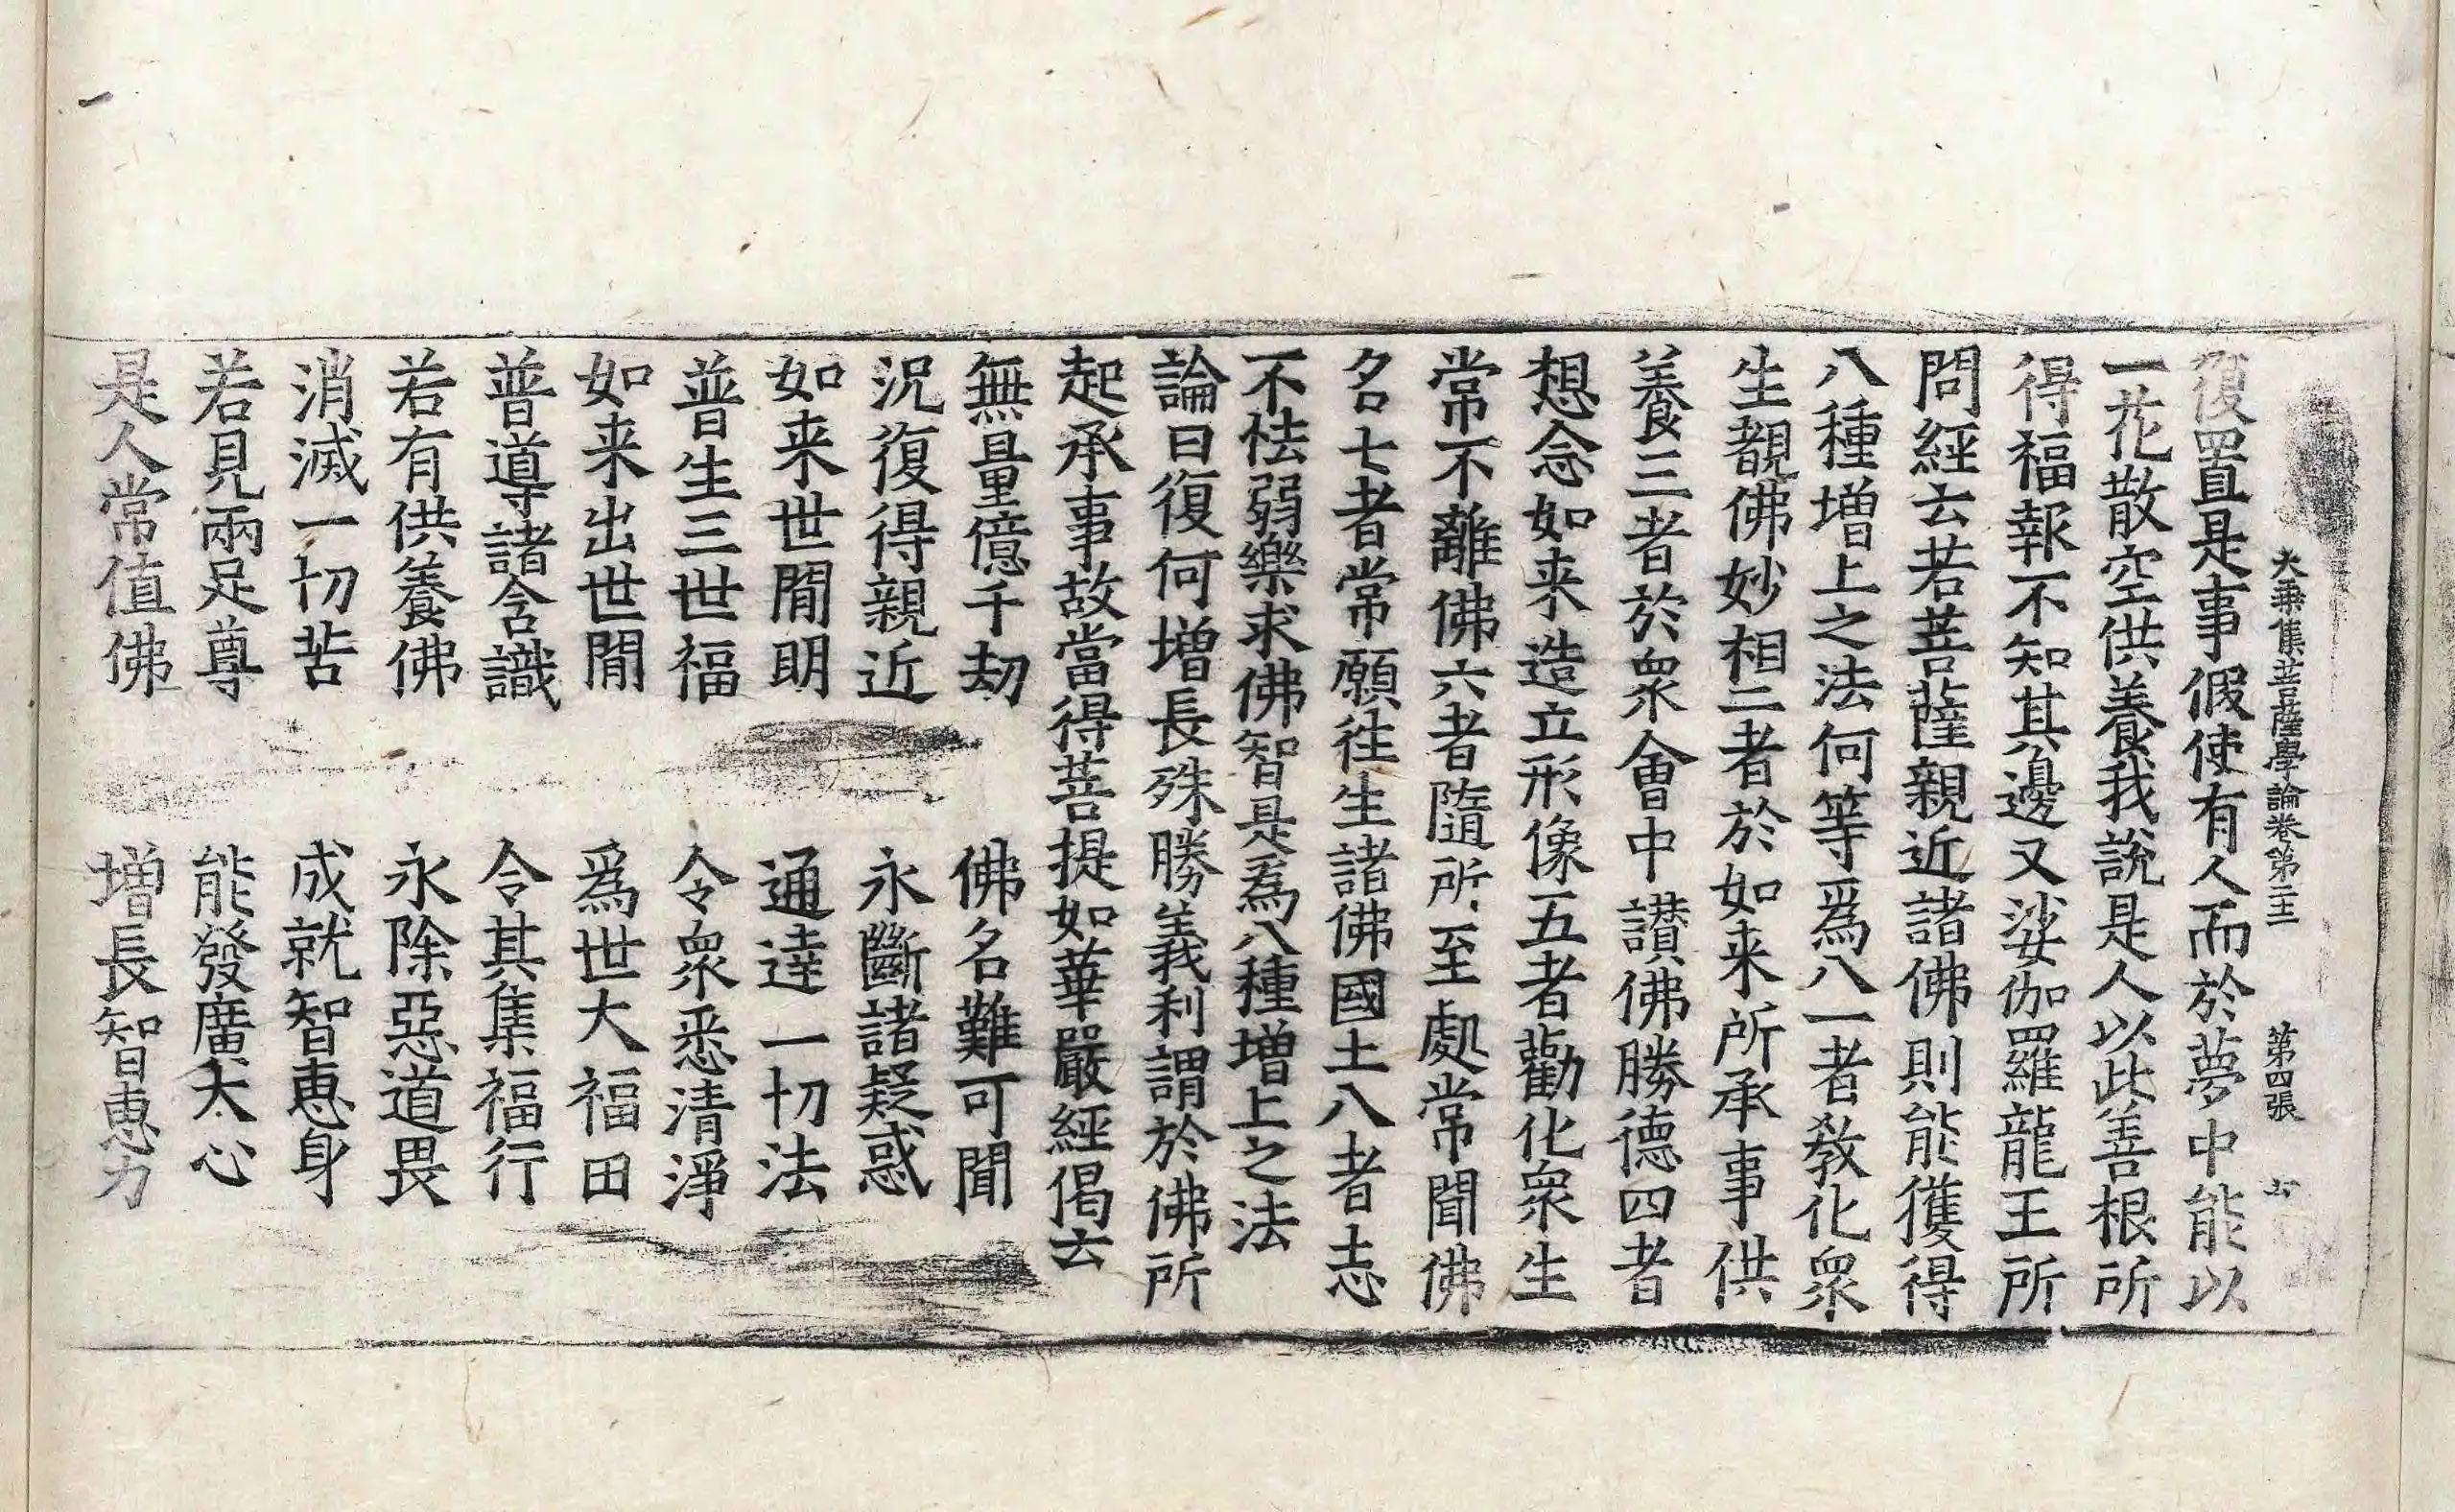 大乗集菩薩學論卷第二十三 第四張
復置是事假使有人而於夢中能以
一花散空供養我說是人以此善根所
得福報不知其邊又娑伽羅龍王所
問經云若菩薩親近諸佛則能獲得
八種增上之法何等爲八一者教化衆
生覩佛妙相二者於如来所承事供
養三者於衆會中讃佛勝德四者
想念如来造立形像五者勸化衆生
常不離佛六者隨所至處常聞佛
名七者常願徃生諸佛國土八者志
不怯弱樂求佛智是爲八種增上之法
論曰復何增長殊勝義利謂於佛所
起承事故當得菩提如華嚴經偈云
無量億千劫 佛名難可聞
況復得親近 永斷諸疑惑
如来世閒明 通達一切法
普生三世福 令衆悉清淨
如来出世閒 爲世大福田
普導諸含識 令其集福行
若有供養佛 永除惡道畏
消滅一切苦 成就智惠身
若見兩足尊 能發廣大心
是人常值佛 增長智惠力